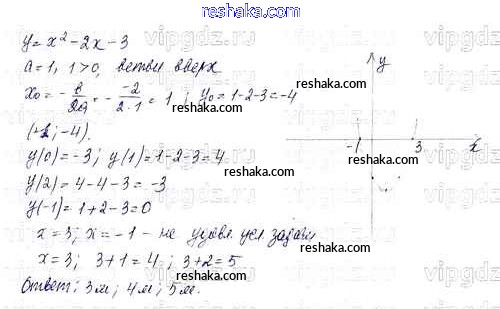 reshaka.com
y = x² - 2x - 3
a = 1, 1 > 0, ветви вверх
x₀ = -в/2a = -(-2)/(2·1) = 1 ; y₀ = 1-2-3 = -4
(1; -4).
y(0) = -3; y(1) = 1-2-3 = 4
y(2) = 4-4-3 = -3
y(-1) = 1+2-3 = 0
x = 3; x = -1 - не удовл. усл. задачи
x = 3; 3+1 = 4 ; 3+2 = 5
Ответ: 3м; 4м; 5м.
y
-1 3 x
reshaka.com
reshaka.com
reshaka.com
reshaka.com
reshaka.com
vipgdz
vipgdz
vipgdz